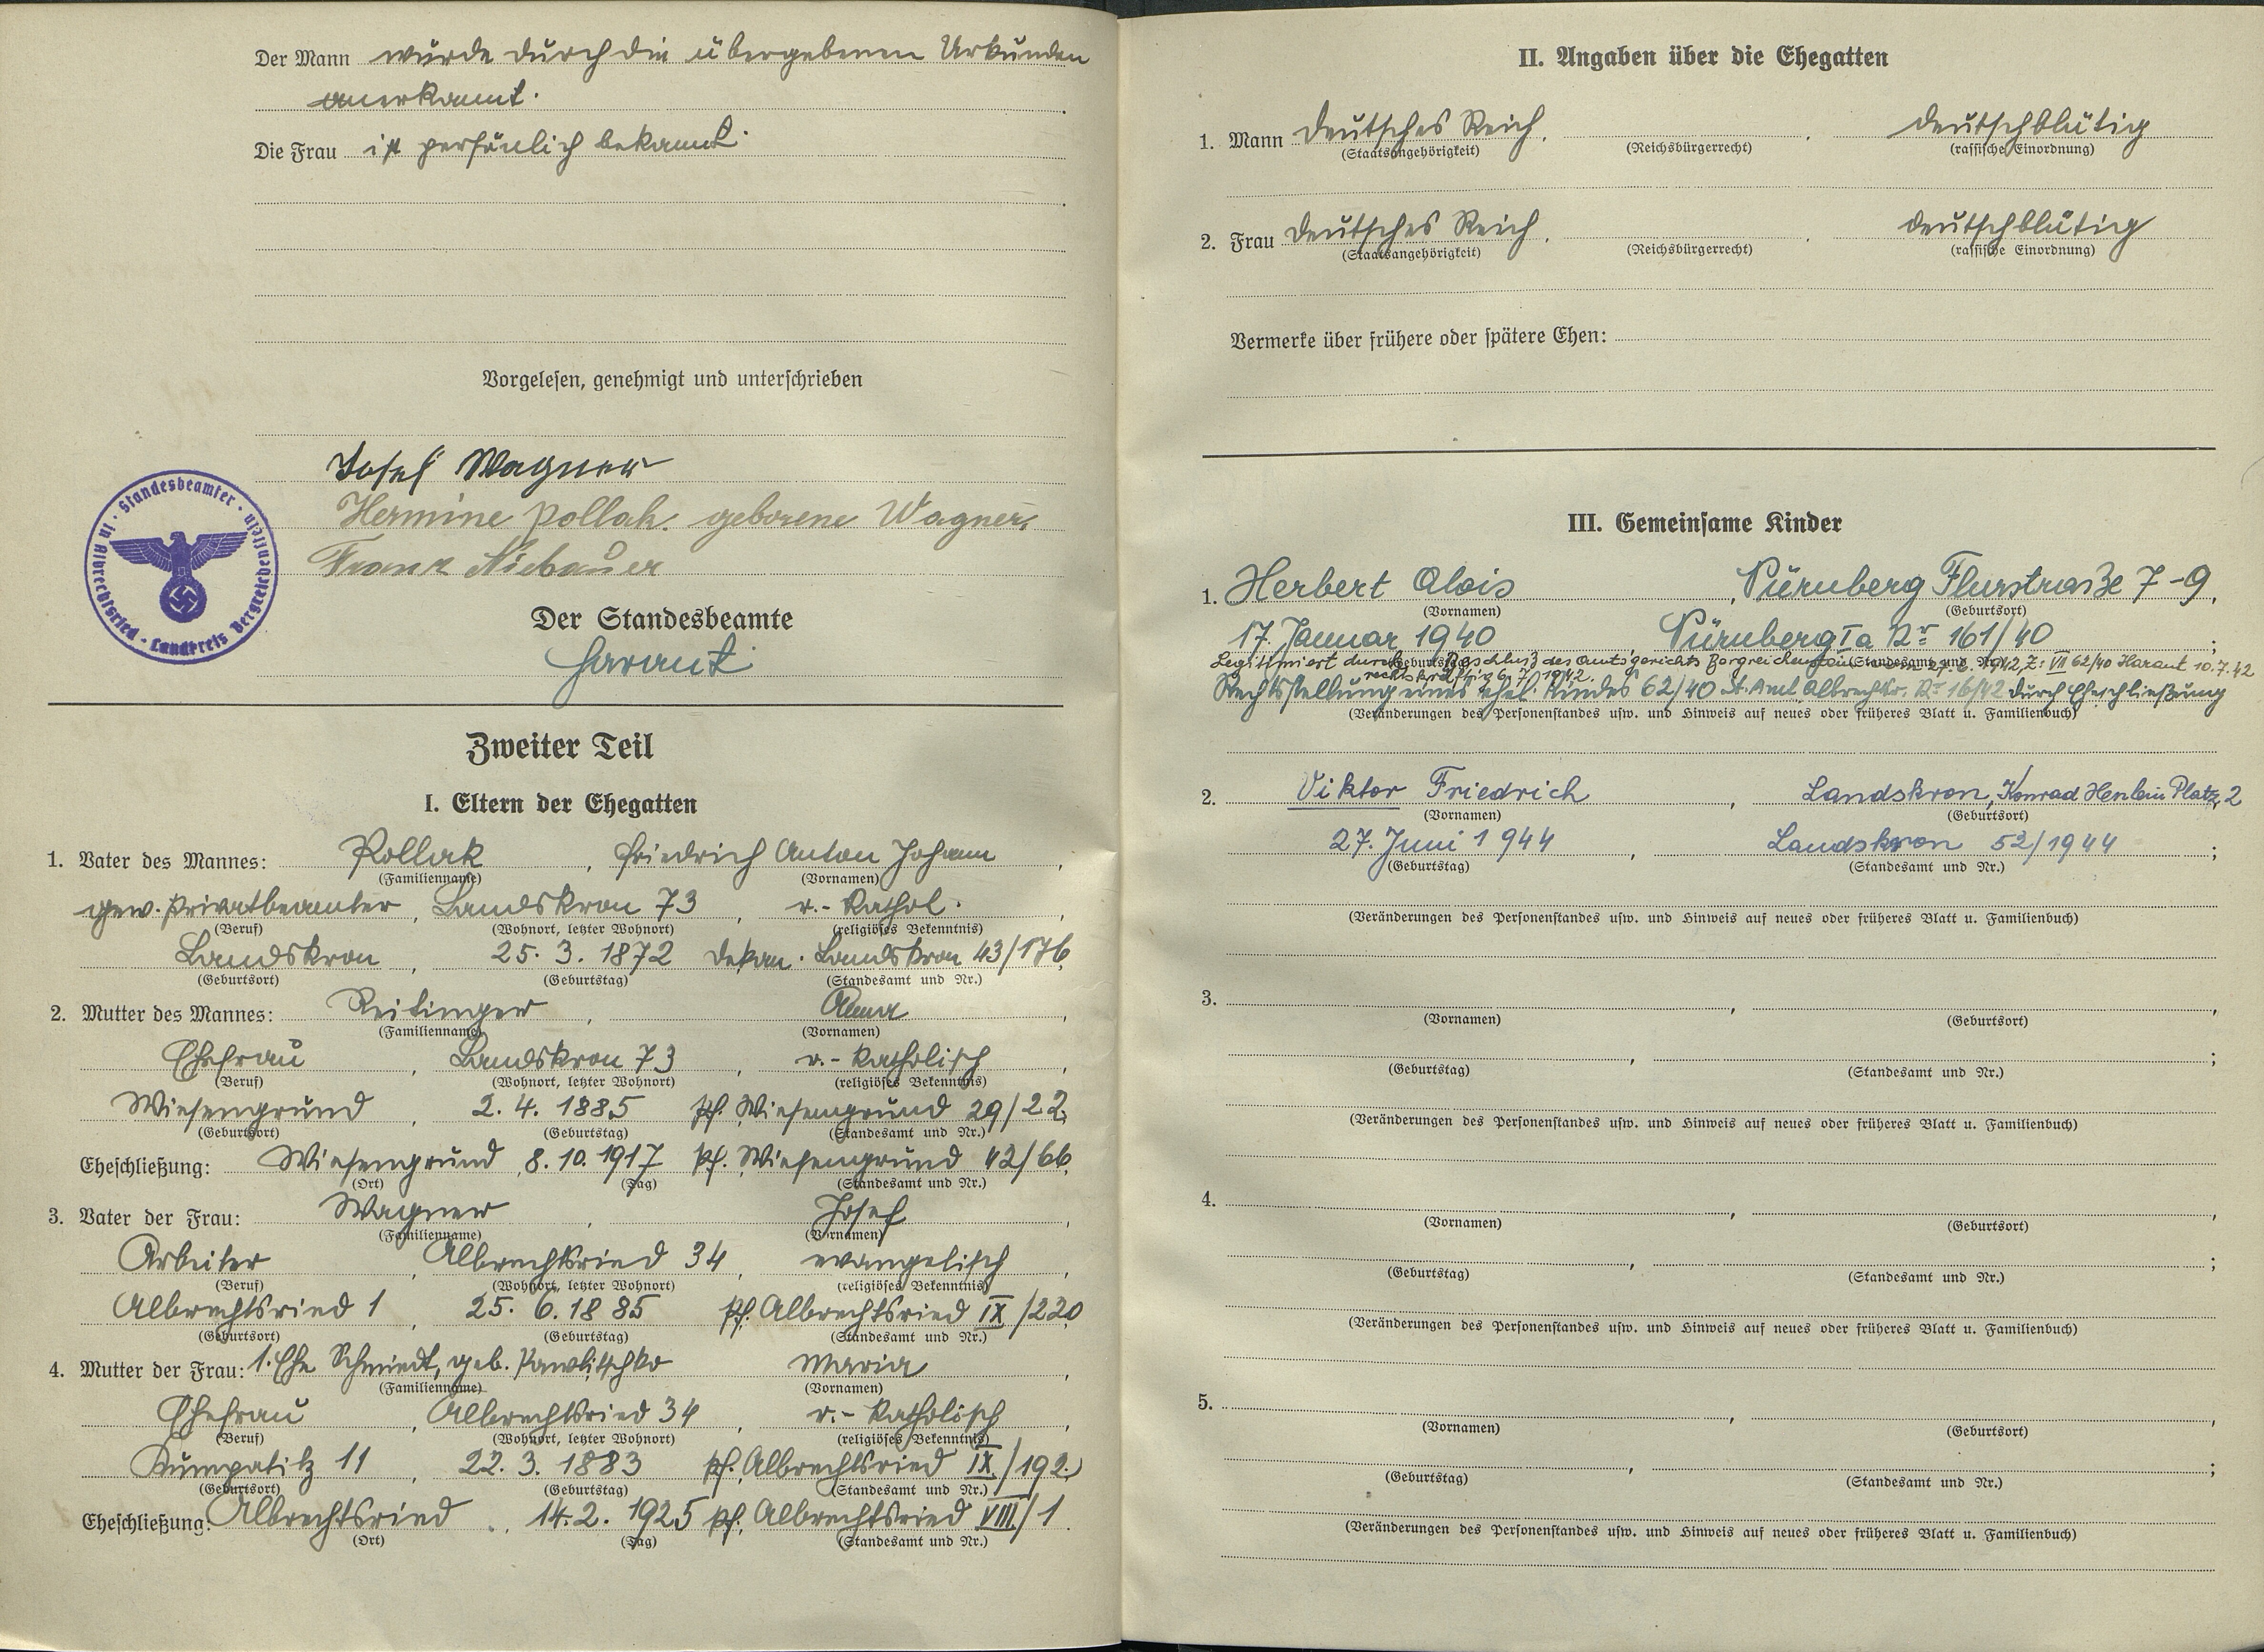 Der Mann wurde durch die übergebenen Urkunden
anerkannt.
Die Frau ist persönlich bekannt.
Vorgelesen, genehmigt und unterschrieben
Josef Wagner
Hermine Pollak geborene Wagner
Franz Niebauer
Standesbeamter · in Albrechtsried · Landkreis Bergreichenstein
Der Standesbeamte
Harant
Zweiter Teil
I. Eltern der Ehegatten
1. Vater des Mannes: Pollak, Friedrich Anton Johann,
(Familienname) (Vornamen)
gew. Privatbeamter, Landskron 73, r.-kathol.,
(Beruf) (Wohnort, letzter Wohnort) (religiöses Bekenntnis)
Landskron, 25. 3. 1872 Dekan. Landskron 43/176
(Geburtsort) (Geburtstag) (Standesamt und Nr.)
2. Mutter des Mannes: Reitinger, Anna,
(Familienname) (Vornamen)
Ehefrau, Landskron 73, r.-katholisch,
(Beruf) (Wohnort, letzter Wohnort) (religiöses Bekenntnis)
Wiesengrund, 2. 4. 1885 Pf. Wiesengrund 29/22.
(Geburtsort) (Geburtstag) (Standesamt und Nr.)
Eheschließung: Wiesengrund, 8. 10. 1917 Pf. Wiesengrund 42/66.
(Ort) (Tag) (Standesamt und Nr.)
3. Vater der Frau: Wagner, Josef,
(Familienname) (Vornamen)
Arbeiter, Albrechtsried 34, evangelisch,
(Beruf) (Wohnort, letzter Wohnort) (religiöses Bekenntnis)
Albrechtsried 1, 25. 6. 1885 Pf. Albrechtsried IX/220
(Geburtsort) (Geburtstag) (Standesamt und Nr.)
4. Mutter der Frau: 1. Ehe Schmiedt, geb. Pawlitschko Maria,
(Familienname) (Vornamen)
Ehefrau, Albrechtsried 34, r.-katholisch,
(Beruf) (Wohnort, letzter Wohnort) (religiöses Bekenntnis)
Kumpatitz 11, 22. 3. 1883 Pf. Albrechtsried IX./192.
(Geburtsort) (Geburtstag) (Standesamt und Nr.)
Eheschließung: Albrechtsried, 14. 2. 1925 Pf. Albrechtsried VIII/1.
(Ort) (Tag) (Standesamt und Nr.)
II. Angaben über die Ehegatten
1. Mann Deutsches Reich, , deutschblütig
(Staatsangehörigkeit) (Reichsbürgerrecht) (rassische Einordnung)
2. Frau Deutsches Reich, , deutschblütig
(Staatsangehörigkeit) (Reichsbürgerrecht) (rassische Einordnung)
Vermerke über frühere oder spätere Ehen:
III. Gemeinsame Kinder
1. Herbert Alois, Nürnberg Flurstraße 7-9,
(Vornamen) (Geburtsort)
17. Januar 1940 Nürnberg Ia Nr 161/40;
(Geburtstag) (Standesamt und Nr.)
Legitimiert durch Beschluß des Amtsgerichts Bergreichenstein 1942, Z: VII 62/40 Harant 10.7.42
rechtskräftig 6.7.1942.
Rechtsstellung eines ehel. Kindes 62/40 St. Amt Albrechtsr. Nr 16/42 durch Eheschließung
(Veränderungen des Personenstandes usw. und Hinweis auf neues oder früheres Blatt u. Familienbuch)
2. Viktor Friedrich, Landskron, Konrad Henlein Platz 2
(Vornamen) (Geburtsort)
27. Juni 1944, Landskron 52/1944;
(Geburtstag) (Standesamt und Nr.)
(Veränderungen des Personenstandes usw. und Hinweis auf neues oder früheres Blatt u. Familienbuch)
3. , ,
(Vornamen) (Geburtsort)
, ;
(Geburtstag) (Standesamt und Nr.)
(Veränderungen des Personenstandes usw. und Hinweis auf neues oder früheres Blatt u. Familienbuch)
4. , ,
(Vornamen) (Geburtsort)
, ;
(Geburtstag) (Standesamt und Nr.)
(Veränderungen des Personenstandes usw. und Hinweis auf neues oder früheres Blatt u. Familienbuch)
5. , ,
(Vornamen) (Geburtsort)
, ;
(Geburtstag) (Standesamt und Nr.)
(Veränderungen des Personenstandes usw. und Hinweis auf neues oder früheres Blatt u. Familienbuch)